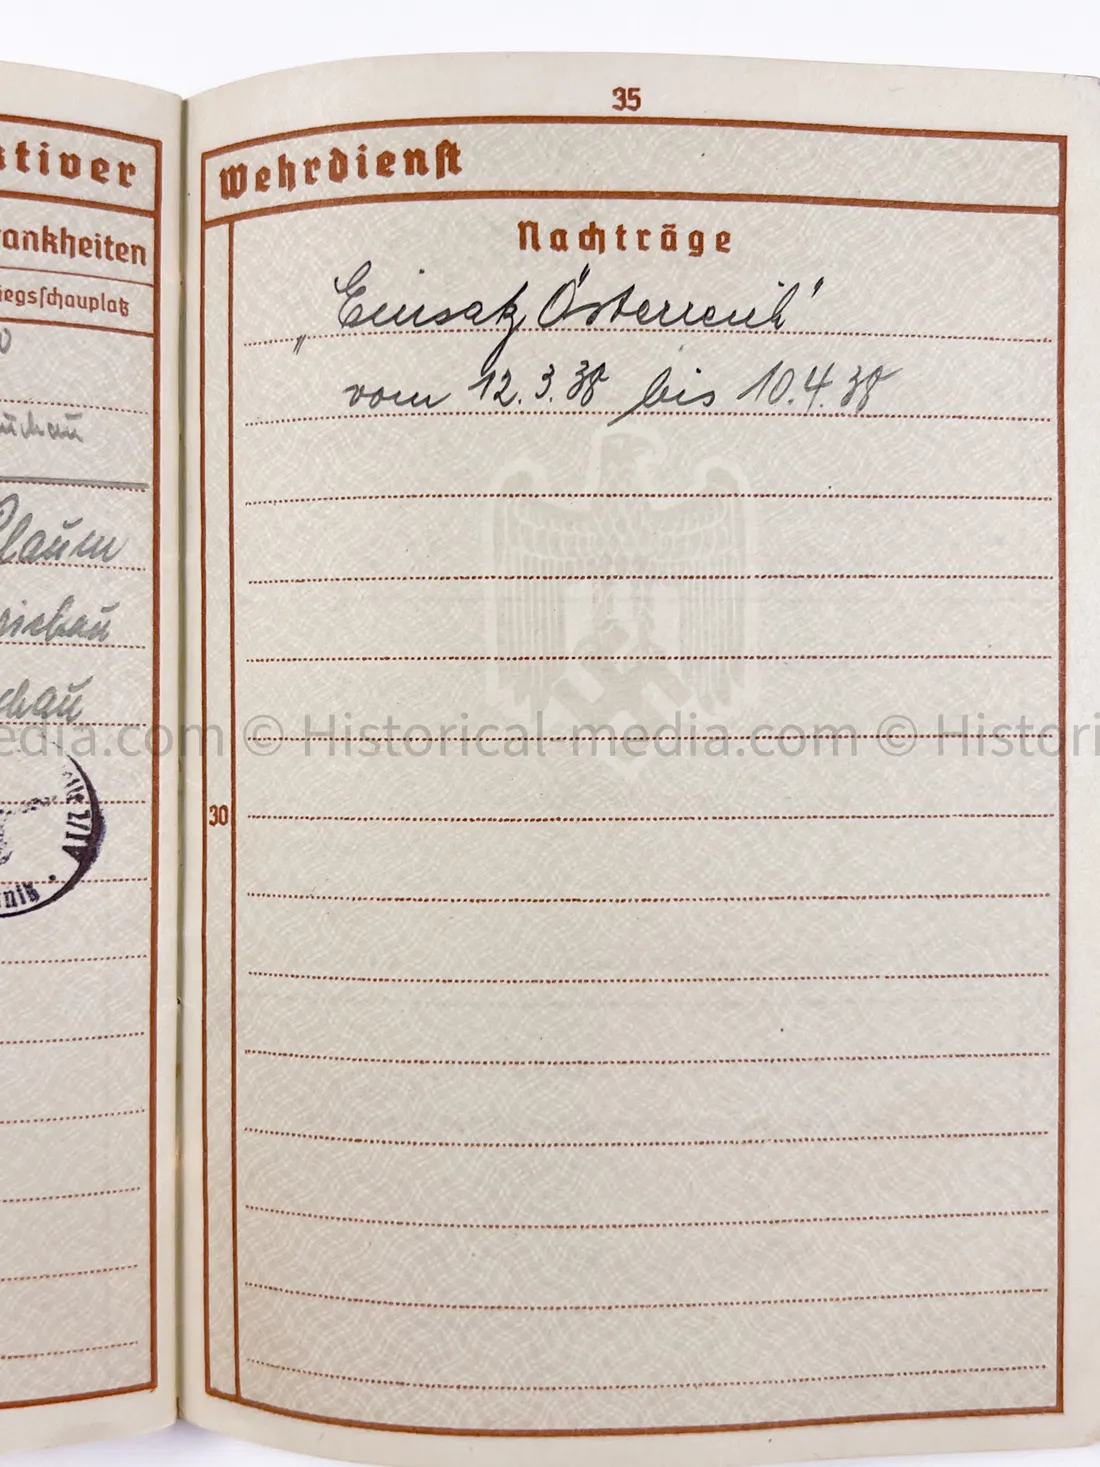 ktiver
ankheiten
iegsschauplatz
35
Wehrdienst
Nachträge
„Einsatz Österreich"
vom 12.3.38 bis 10.4.38
30
edia.com © Historical-media.com © Histori